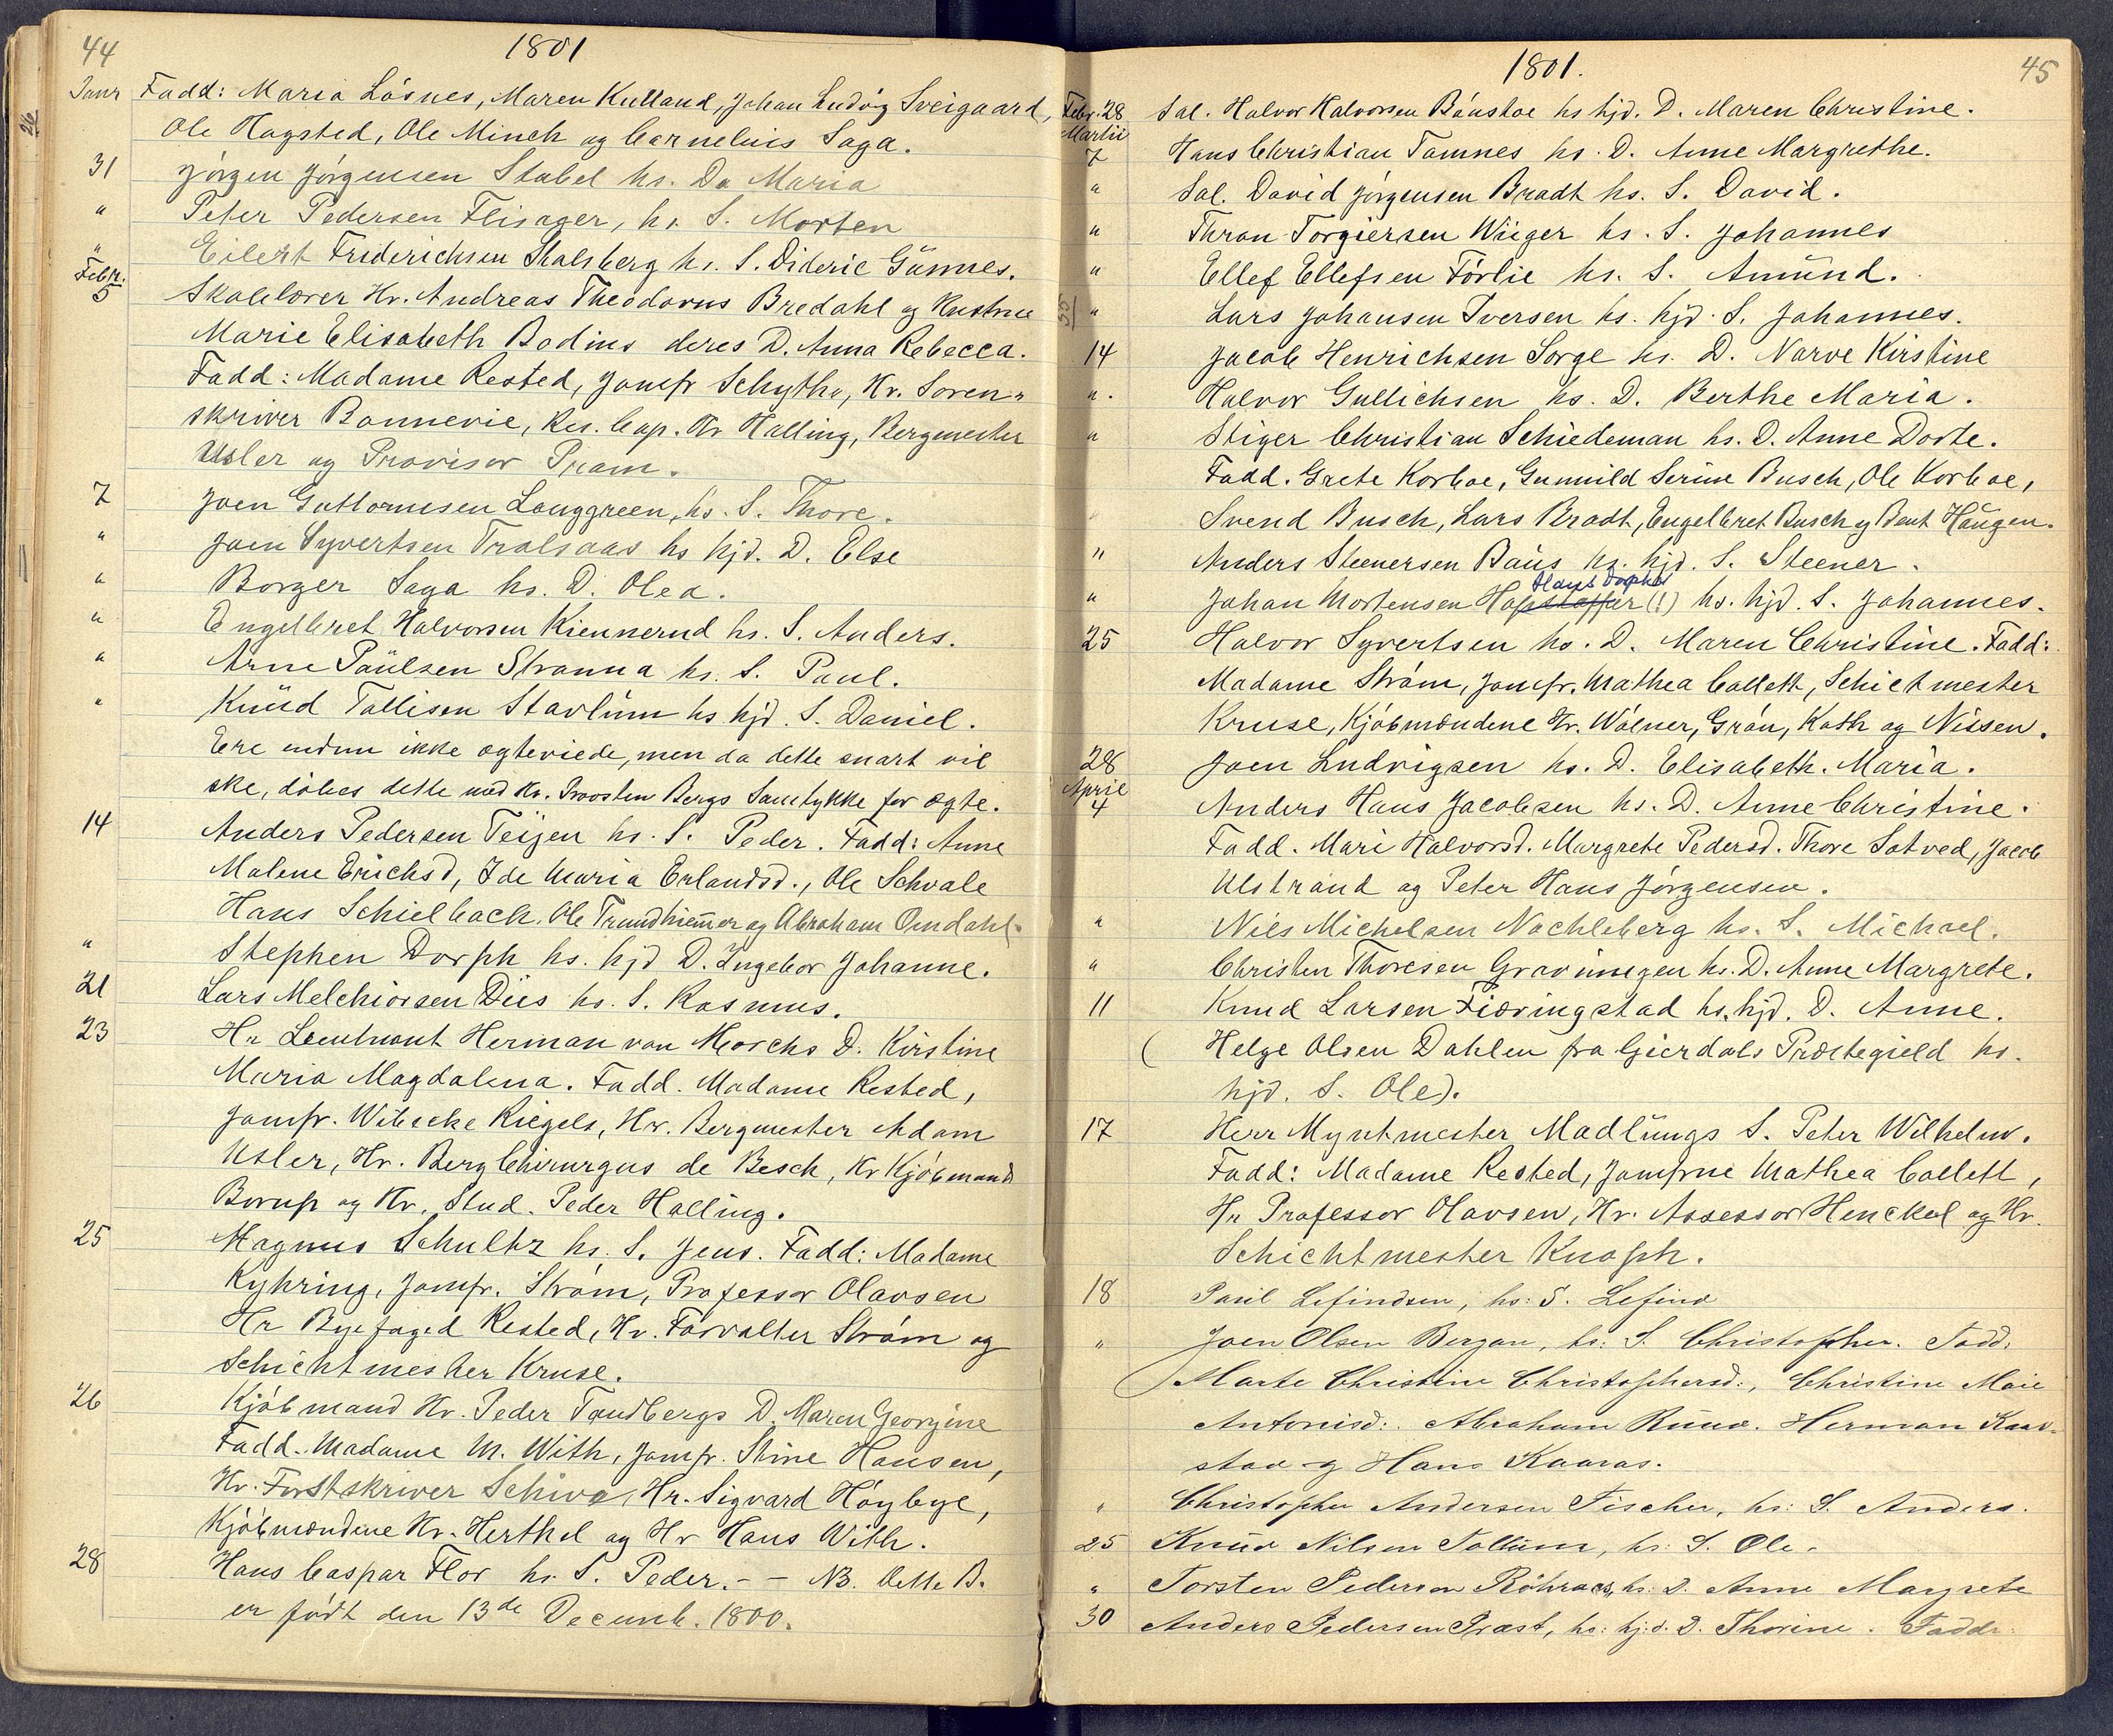 44
1801
Janr Fadd: Maria Lösnes, Maren Kulland, Johan Ludvig Sveigaard,
Ole Hagsted, Ole Minch og Cornelius Saga.
31 Jörgen Jörgensen Stabel hs. Da Maria
" Peter Pedersen Flisager, hs. S. Morten
" Eilert Friderichsen Skalsberg hs. S. Dideric Günnes.
Febr. 5 Skolelærer Hr. Andreas Theodorus Bredahl og Hustrue
Marie Elisabeth Bodins deres D. Anna Rebecca.
Fadd: Madame Rested, Jomfr Schythe, Hr. Soren-
skriver Bonnevie, Res. Cap. Hr Halling, Bergmester
Usler og Provisor Pram.
7 Joen Guttormsen Langgreen, hs. S. Thore.
" Joen Syvertsen Tralsaas hs hjd. D. Else
" Borger Saga hs. D. Olea.
" Engelbret Halvorsen Kiennerud hs. S. Anders.
" Arne Paülsen Stranna hs. S. Paul.
" Knüd Tollisen Stavlüm hs hjd. S. Daniel.
Ere endnu ikke ægteviede, men da dette snart vil
ske, döbes dette med Hr. Provsten Bergs Samtykke for ægte.
14 Anders Pedersen Teijen hs. S. Peder. Fadd: Anne
Malene Erichsd, Ide Maria Erlandsd., Ole Schvale
Hans Schielbach. Ole Trundhiemer og Abraham Omdahl.
" Stephen Dorph hs. hjd D. Ingebor Johanne.
21 Lars Melchiorsen Diis hs. S. Rasmus.
23 Hr Leeutnant Herman von Morchs D. Kirstine
Maria Magdalena. Fadd. Madame Rested,
Jomfr. Wibecke Riegels, Hr. Bergmester Adam
Usler, Hr. Berg Chirurgus de Besch, Hr Kjöbmand
Borup og Hr. Stud. Peder Halling.
25 Magnus Schultz hs. S. Jens. Fadd: Madame
Kyhring, Jomfr. Ström, Professor Olavsen
Hr Byefaged Rested, Hr. Forvalter Ström og
Schichtmester Kruse.
26 Kjöbmand Hr. Peder Tandbergs D. Maren Georgine
Fadd. Madame M. With, Jomfr. Stine Hansen,
Hr. Forstskriver Schive, Hr. Sigvard Höybye,
Kjöbmændene Hr. Herthel og Hr Hans With.
28 Hans Caspar Flor hs. S. Peder. - - NB. Dette B.
er födt den 13de Decemb. 1800.
1801.
45
Febr. 28 Sal. Halvor Halvorsen Bänskoe hs hjd. D. Maren Christine.
Martii
7 Hans Christian Tamnes hs. D. Anne Margrethe.
" Sal. David Jörgensen Bradt hs. S. David.
" Thron Torgiersen Wiiger hs. S. Johannes
" Ellef Ellefsen Förlie hs. S. Amünd.
" Lars Johansen Iversen hs. hjd. S. Johannes.
14 Jacob Henrichsen Sorge hs. D. Narve Kirstine
" Halvor Gullichsen hs. D. Berthe Maria.
" Stiger Christian Schiedeman hs. D. Anne Dorte.
Fadd. Grete Korboe, Gunnild Serine Busch, Ole Korboe,
Svend Busch, Lars Bradt, Engelbret Busch og Bent Haugen.
" Anders Steenersen Baüs hs. hjd. S. Steener.
" Johan Mortensen Hapstaffer (!) hs. hjd. S. Johannes.
25 Halvor Syvertsen hs. D. Maren Christine. Fadd:
Madame Ström, Jomfr. Mathea Collett, Schichtmester
Kruse, Kjöbmændene Hr. Wölner, Grön, Koth og Nissen.
28 Joen Ludvigsen hs. D. Elisabeth. Maria.
April
4 Anders Hans Jacobsen hs. D. Anne Christine.
Fadd. Mari Halvorsd. Margrete Pedersd. Thore Sotved, Jacob
Ulstrand og Peter Hans Jörgensen.
" Niels Michelsen Nachleberg hs. S. Michael.
" Christen Thoresen Gravningen hs. D. Anne Margrete.
11 Knud Larsen Fiæringstad hs. hjd. D. Anne.
( Helge Olsen Dahlen fra Gierdals Præstegield hs.
hjd. S. Ole).
17 Herr Myntmester Madlüngs S. Peter Wilhelm.
Fadd: Madame Rested, Jomfrue Mathea Collett,
Hr Professor Olavsen, Hr. Assessor Henckel og Hr.
Schichtmester Knoph.
18 Paül Lefindsen, hs: S. Lefind
" Joen Olsen Bergan, hs: S. Christopher. Fadd:
Marte Christine Christophersd:, Christine Marie
Antonisd: Abraham Ruud. Herman Kaav-
stad og Hans Kaaras.
" Christopher Andersen Fischer, hs: S. Anders.
25 Knüd Nilsen Tollüm, hs: S. Ole.
" Torsten Pedersen Röhraas, hs: D. Anne Margrete
30 Anders Pedersen Præst, hs: hjd. D. Thorine. Faddr: